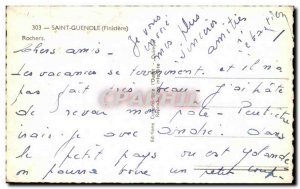 303 - SAINT-GUENOLE (Finistère)
Rochers.
Je vous
envoie
mes plus
sincères
amitiés
Chers amis.
Les vacances se terminent. et il n'a
pas fait très beau. J'ai hâte
de revoir mon
irais je avec André. dans
le petit pays ou est Yolande
on pourra boire un petit coup